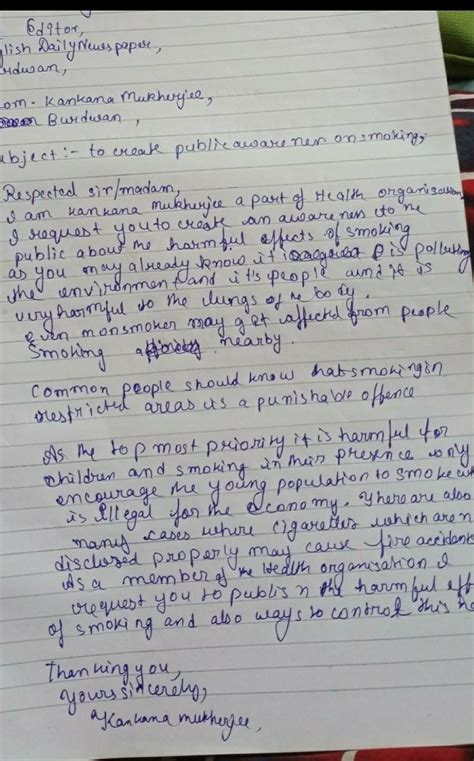 Editor,
glish Daily News paper,
rdwan,
om - Kankana Mukherjee,
Burdwan,
ubject :- to create public awareness on smoking,
Respected sir/madam,
I am kankana mukherjee a part of Health organisation
I request you to create an awareness to the
public about the harmful effects of smoking
as you may already know it is polluting
the environment and it's people and it is
very harmful to the lungs of the body.
Even nonsmoker may get affected from people
Smoking nearby.
Common people should know that smoking in
restricted areas is a punishable offence
As the top most priority it is harmful for
children and smoking in their presence only
encourage the young population to smoke
is illegal for the economy. There are also
many cases where cigarettes which aren
disclosed properly may cause fire accidents
As a member of the Health organisation I
request you to publish the harmful eff
of smoking and also ways to control this
Thanking you,
Yours sincerely,
Kankana mukherjee,